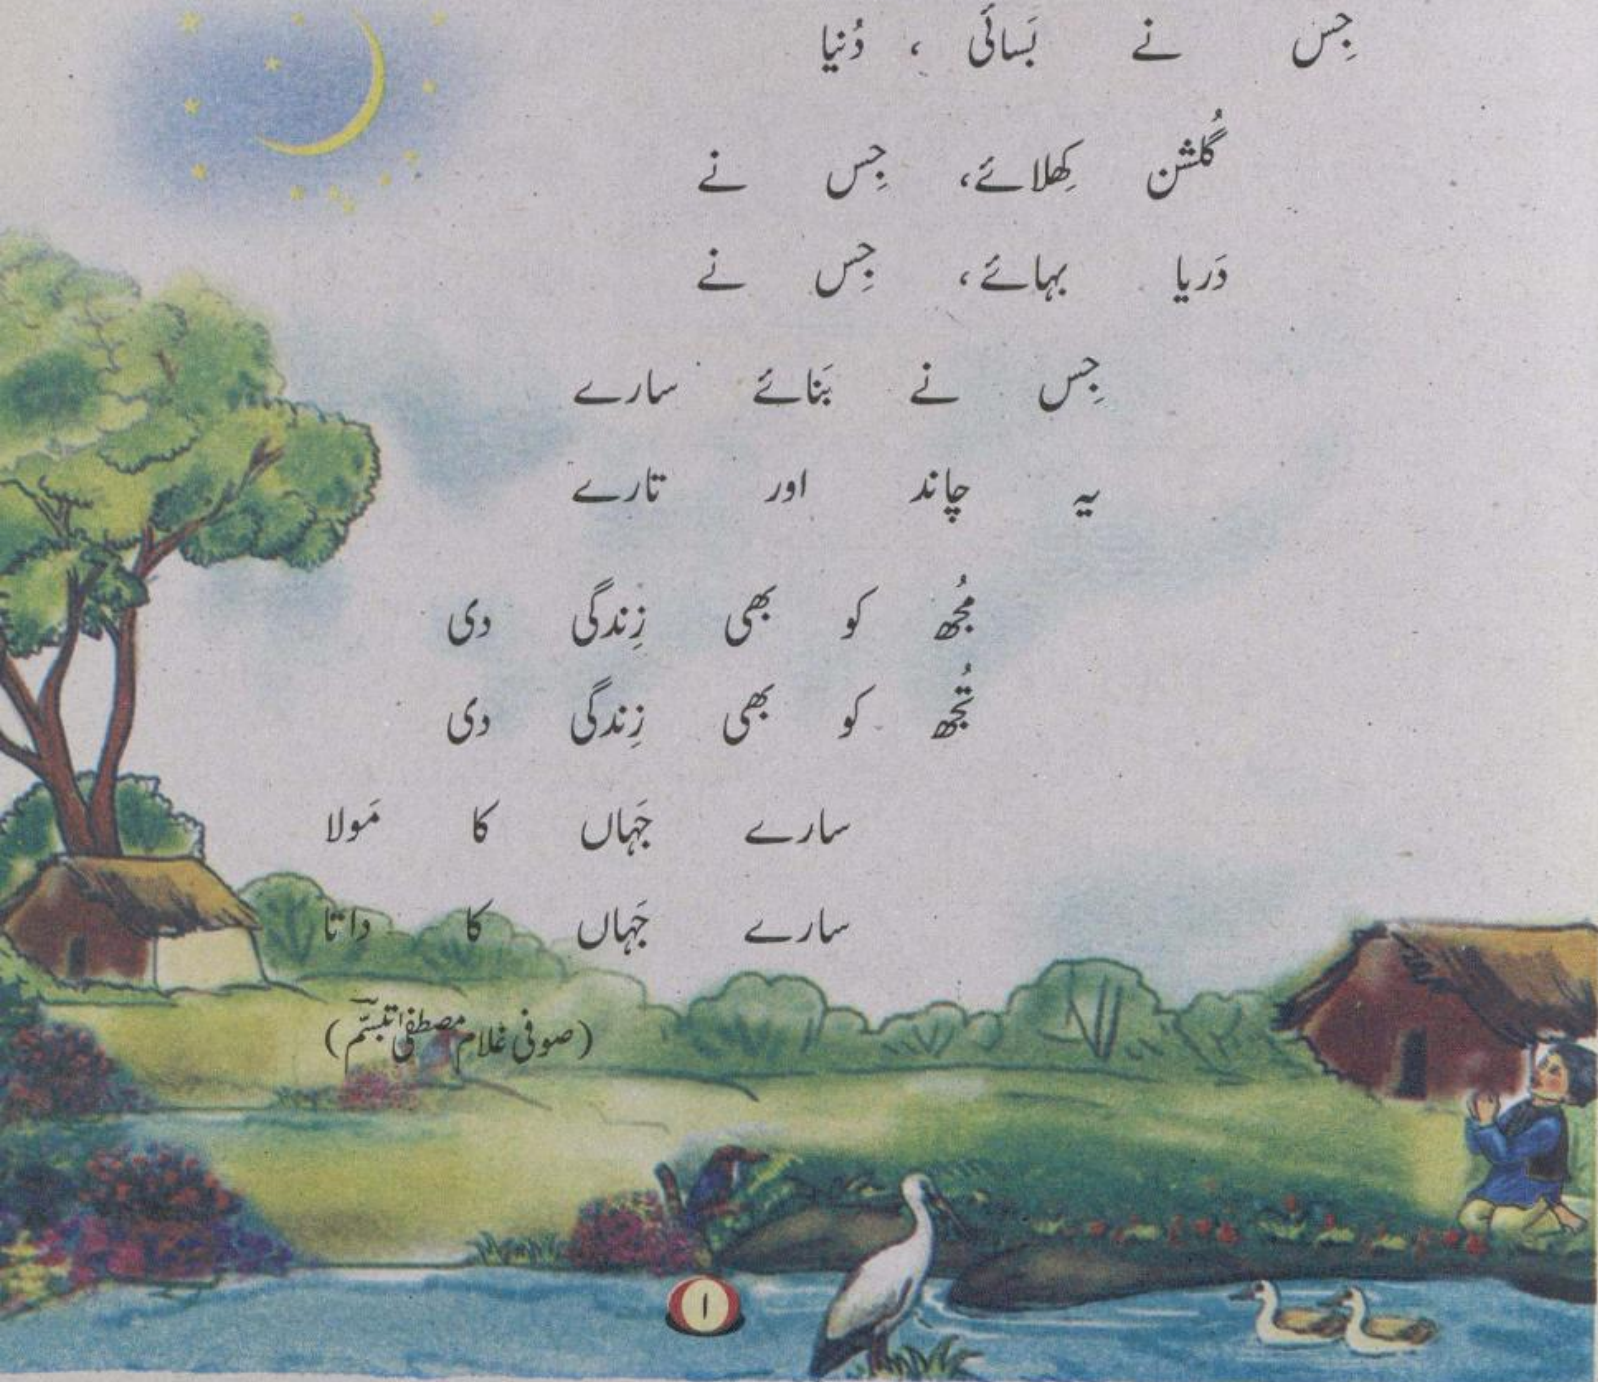 جِس نے بَسائی ، دُنیا
گُلشن کِھلائے، جِس نے
دَریا بہائے، جِس نے
جِس نے بَنائے سارے
یہ چاند اور تارے
مُجھ کو بھی زِندگی دی
تُجھ کو بھی زِندگی دی
سارے جَہاں کا مَولا
سارے جَہاں کا داتا
(صوفی غلام مصطفیٰ تبسّم)
۱